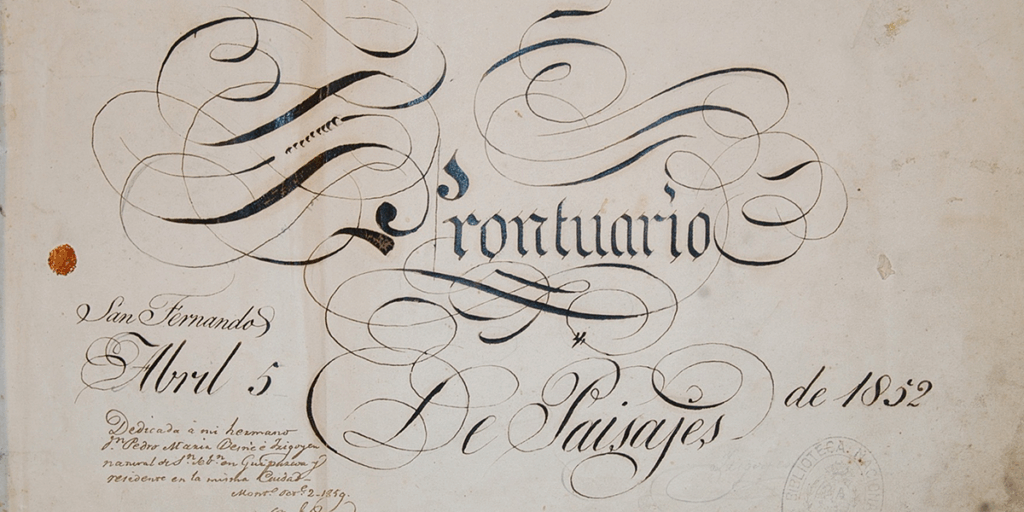 Prontuario
San Fernando
Abril 5 De Paisajes de 1852
Dedicada à mi hermano
Dn Pedro Maria
natural de Sn en Guipuzcoa y
residente en la misma Ciudad
2-1859
BIBLIOTECA